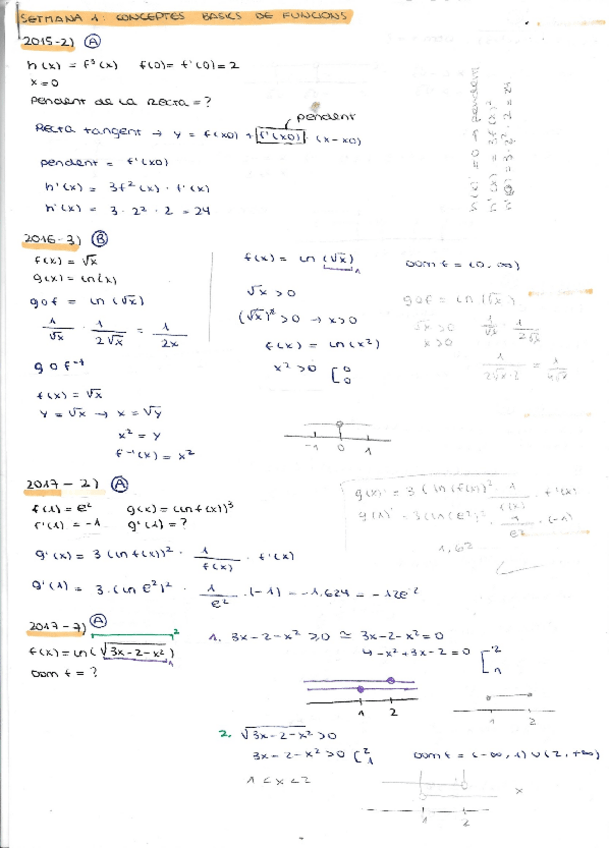 SETMANA 1: CONCEPTES BASICS DE FUNCIONS
2015-2) A
h(x) = f³(x) f(0) = f'(0) = 2
x = 0
Pendent de la recta = ?
pendent
Recta tangent → y = f(x0) + f'(x0) · (x-x0)
pendent = f'(x0)
h'(x) = 3f²(x) · f'(x)
h'(x) = 3 · 2² · 2 = 24
2016-3) B
f(x) = √x
g(x) = ln(x)
gof = ln(√x)
1/√x · 1/2√x = 1/2x
gof⁻¹
f(x) = √x
y = √x → x = √y
x² = y
f⁻¹(x) = x²
f(x) = ln(√x)
√x > 0
(√x)² > 0 → x > 0
f(x) = ln(x²)
x² > 0 [ 0 0
-1 0 1
dom f = (0, ∞)
gof = ln(√x)
√x > 0
x > 0
2017-2) A
f(1) = e² g(x) = (ln f(x))³
f'(1) = -1 g'(1) = ?
g'(x) = 3(ln f(x))² · 1/f(x) · f'(x)
g'(1) = 3·(ln e²)² · 1/e² · (-1) = -1,624 = -12e⁻²
1,62
2017-7) A
f(x) = ln(√3x-2-x²)
dom f = ?
1. 3x-2-x² ≥ 0 ≃ 3x-2-x² = 0
↳ -x²+3x-2 = 0 [ 2 1
1 2
1 2
2. √3x-2-x² > 0
3x-2-x² > 0 [ 2 1
1 < x < 2
dom f = (-∞, 1) ∪ (2, +∞)
x
1 2